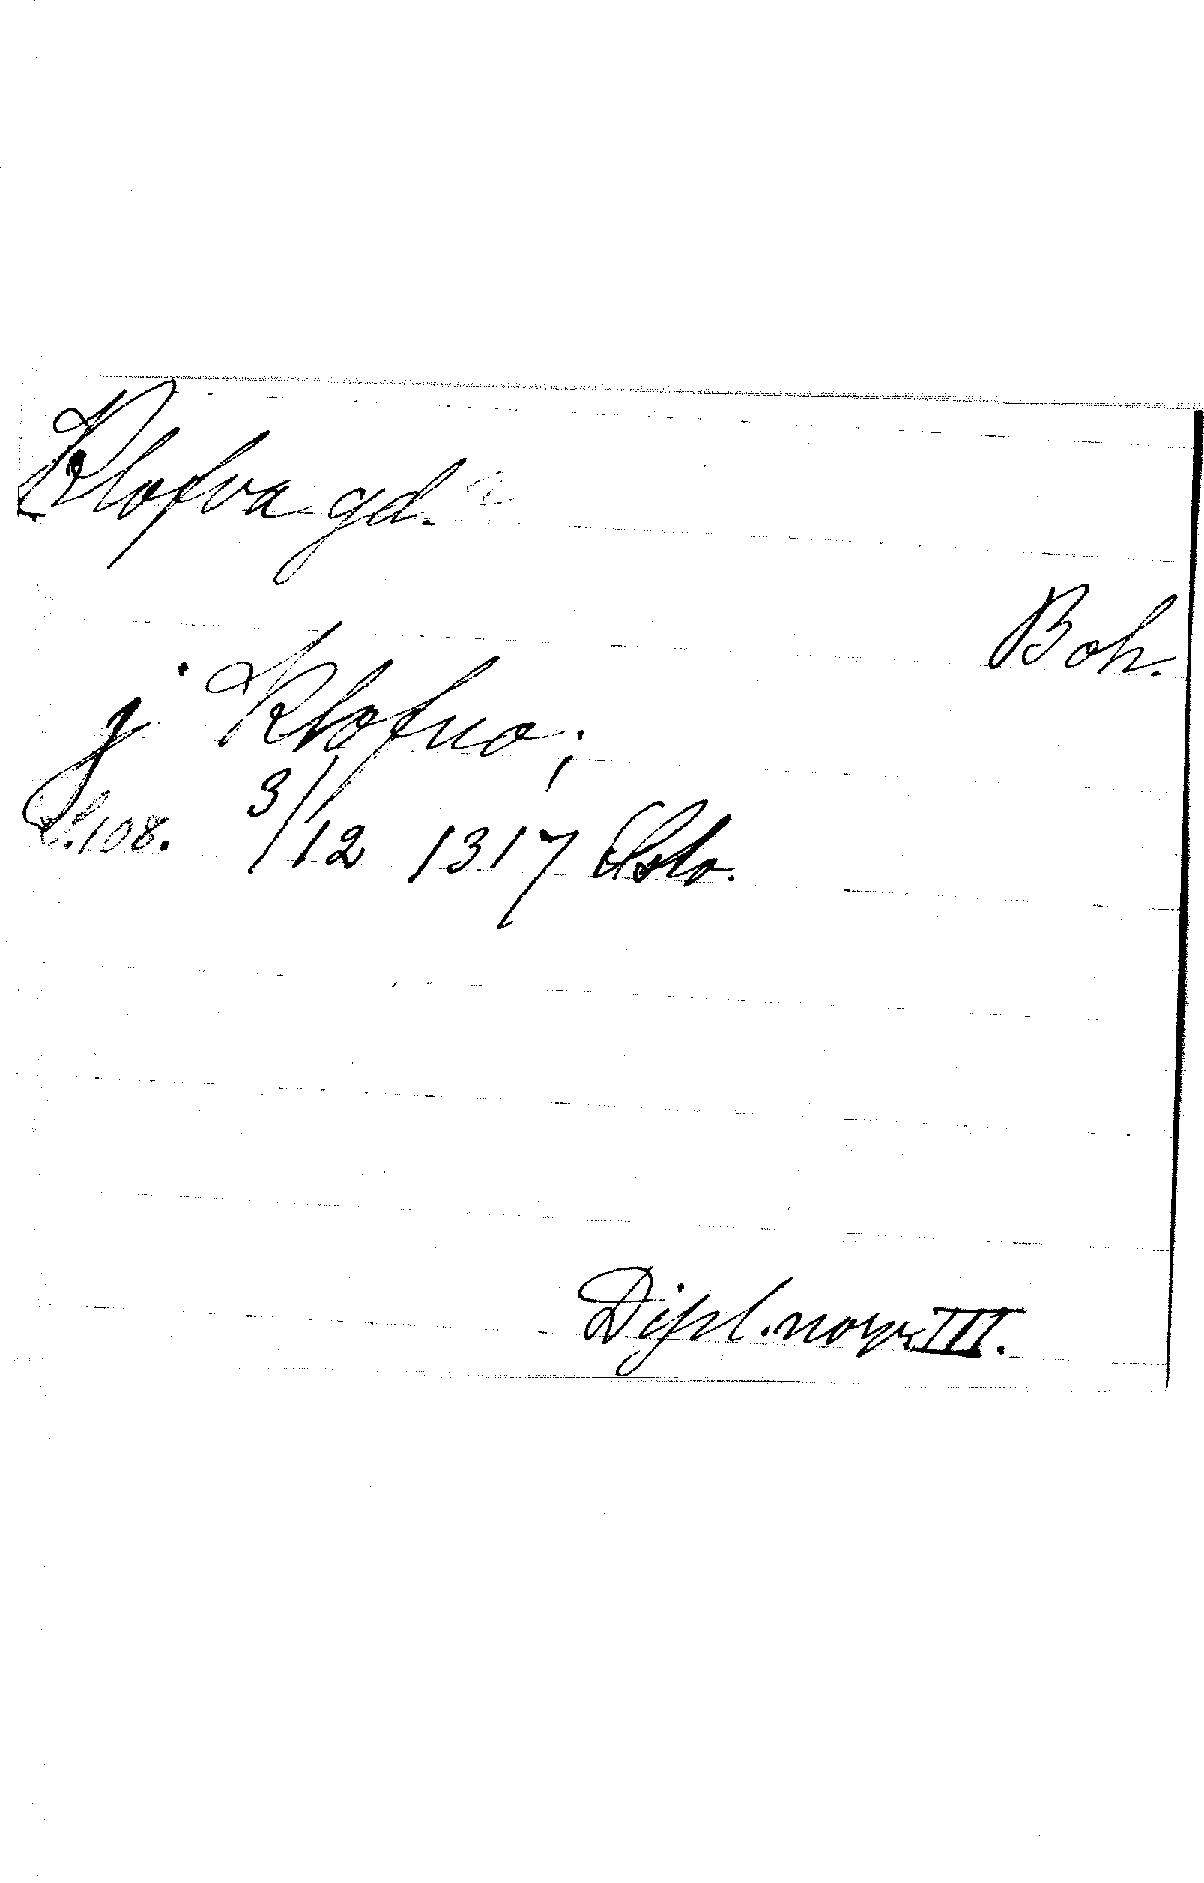 Klofva gd.
Boh.
j Klofuo;
S. 108. 3/12 1317 Oslo.
Dipl. norv. III.